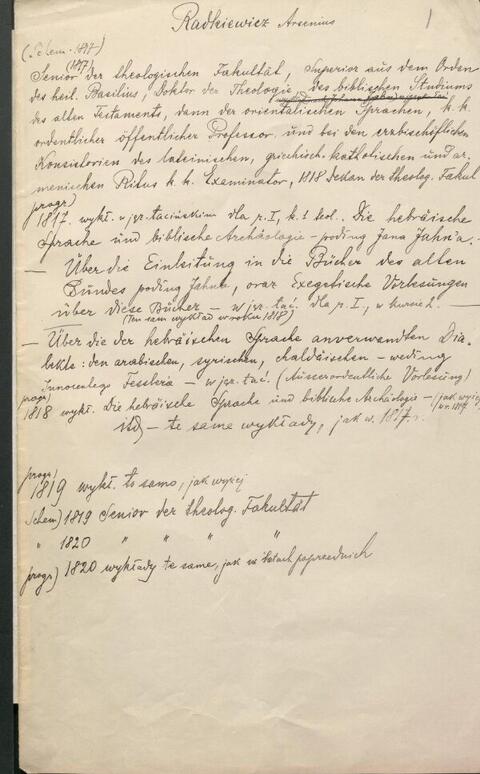 Radkiewicz Arsenius
1
(Schem. 1817)
Senior (1817) der theologischen Fakultät, Superior aus dem Orden
des heil. Basilius, Doktor der Theologie, des biblischen Studiums
des alten Testaments, dann der orientalischen Sprachen, k. k.
ordentlicher öffentlicher Professor und bei den erzbischöflichen
Konsistorien des lateinischen, griechisch-katholischen und ar-
menischen Ritus k. k. Examinator, 1818 Dekan der theolog. Fakul
progr)
1817. wykł. w jęz. łacińskim dla r. I, k. t teol. Die hebräische
Sprache und biblische Archäologie - podług Jana Jahn'a. -
- Über die Einleitung in die Bücher des alten
Bundes podług Jahna, oraz Exegetische Vorlesungen
über diese Bücher - w jęz. łać. dla r. I, w kursie 2. -
(Ten sam wykład w roku 1818)
- Über die der hebräischen Sprache anverwendten Dia-
lekte: den arabischen, syrischen, chaldäischen - według
Innocentego Fesslera - w jęz. łać. (Ausserordentliche Vorlesung)
progr)
1818 wykł. Die hebräische Sprache und biblische Archäologie - (jak wyżej
w r. 1817)
itd - te same wykłady, jak w. 1817 r.
progr)
1819 wykł. to samo, jak wyżej
Schem) 1819 Senior der theolog. Fakultät
" 1820 " " " "
progr) 1820 wykłady te same, jak w latach poprzednich